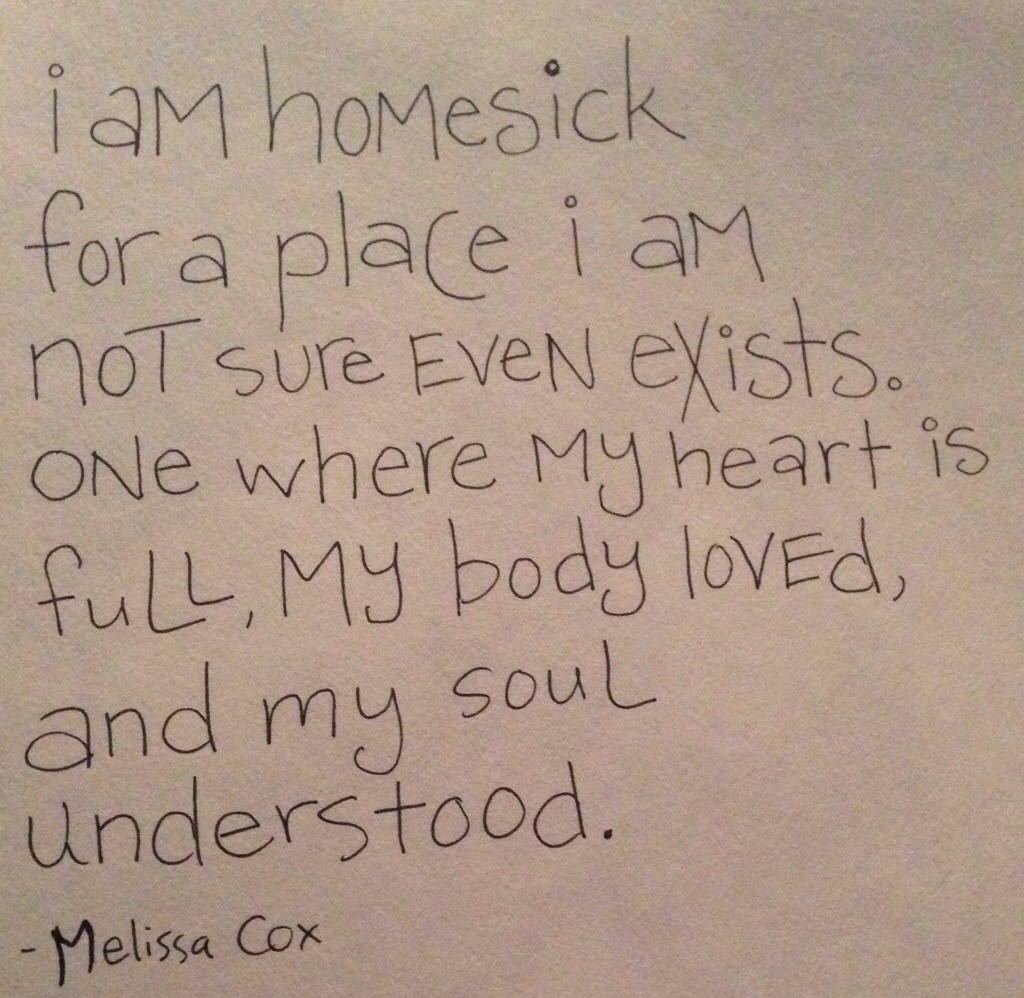 i am homesick
for a place i am
noT sure EVeN exists.
ONe where My heart is
fuLL, My body loVEd,
and my souL
understood.
- Melissa Cox